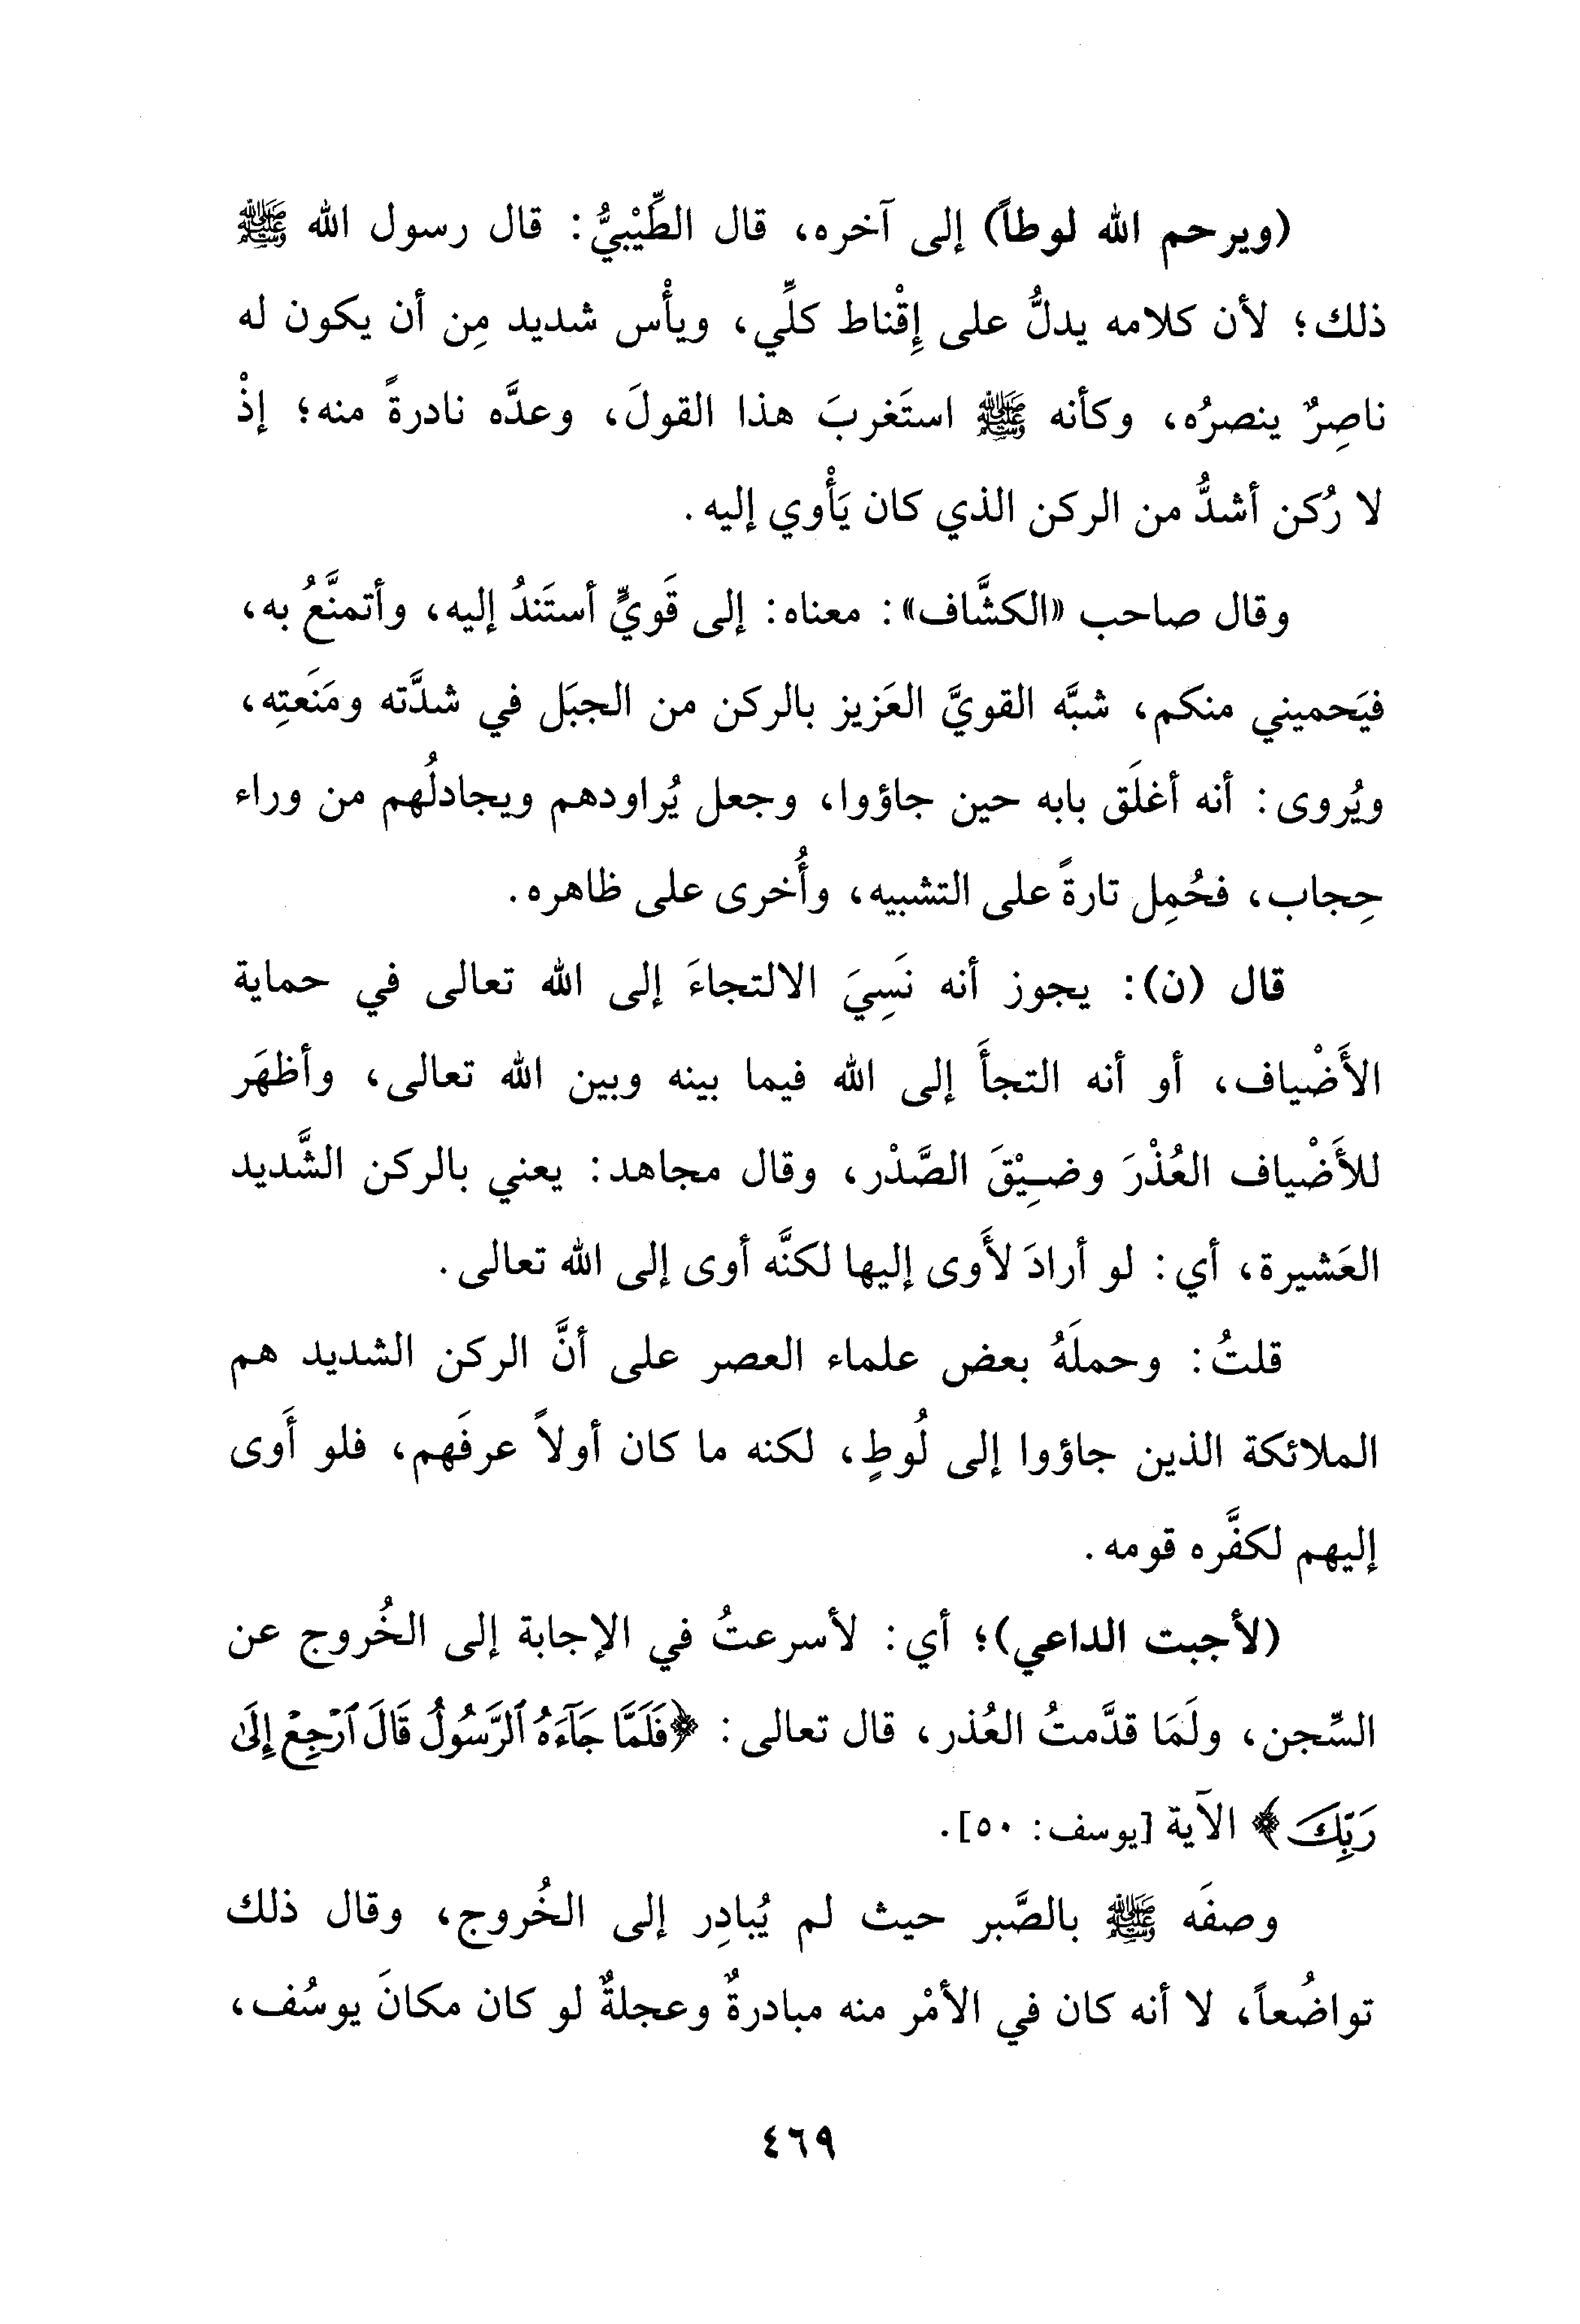 (ويرحم الله لوطاً) إلى آخره، قال الطِّيْبيُّ: قال رسول الله ﷺ
ذلك؛ لأن كلامه يدلُّ على إِقْناط كلِّي، ويأْس شديد مِن أن يكون له
ناصِرٌ ينصرُه، وكأنه ﷺ استَغربَ هذا القولَ، وعدَّه نادرةً منه؛ إذْ
لا رُكن أشدُّ من الركن الذي كان يَأْوي إليه.
وقال صاحب «الكشَّاف»: معناه: إلى قَويٍّ أستَندُ إليه، وأتمنَّعُ به،
فيَحميني منكم، شبَّه القويَّ العَزيز بالركن من الجبَل في شدَّته ومَنَعتِه،
ويُروى: أنه أغلَق بابه حين جاؤوا، وجعل يُراودهم ويجادلُهم من وراء
حِجاب، فحُمِل تارةً على التشبيه، وأُخرى على ظاهره.
قال (ن): يجوز أنه نَسِيَ الالتجاءَ إلى الله تعالى في حماية
الأَضْياف، أو أنه التجأَ إلى الله فيما بينه وبين الله تعالى، وأظهَر
للأَضْياف العُذْرَ وضِيْقَ الصَّدْر، وقال مجاهد: يعني بالركن الشَّديد
العَشيرة، أي: لو أرادَ لأَوى إليها لكنَّه أوى إلى الله تعالى.
قلتُ: وحملَهُ بعض علماء العصر على أنَّ الركن الشديد هم
الملائكة الذين جاؤوا إلى لُوطٍ، لكنه ما كان أولاً عرفَهم، فلو أَوى
إليهم لكفَّره قومه.
(لأجبت الداعي)؛ أي: لأسرعتُ في الإجابة إلى الخُروج عن
السِّجن، ولَمَا قدَّمتُ العُذر، قال تعالى: ﴿فَلَمَّا جَآءَهُ ٱلرَّسُولُ قَالَ ٱرْجِعْ إِلَىٰ
رَبِّكَ﴾ الآية [يوسف: ٥٠].
وصفَه ﷺ بالصَّبر حيث لم يُبادِر إلى الخُروج، وقال ذلك
تواضُعاً، لا أنه كان في الأمْر منه مبادرةٌ وعجلةٌ لو كان مكانَ يوسُف،
٤٦٩